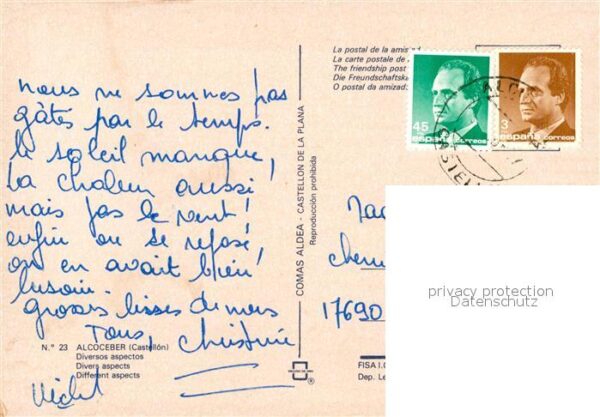 nous ne sommes pas
gâtés par le temps.
le soleil manque,
la chaleur aussi!
mais pas le vent!
enfin on se repose,
on en avait bien
besoin.
grosses bises de nous
Tous, Christine
Michel
La postal de la amis
La carte postale de
The friendship post
Die Freundschaftsk
O postal da amizad:
45
españa correos
3
españa correos
ALCO
CASTEL
COMAS ALDEA - CASTELLON DE LA PLANA
Reproducción prohibida
17690
privacy protection
Datenschutz
N.º 23 ALCOCEBER (Castellón)
Diversos aspectos
Divers aspects
Different aspects
FISA I.G
Dep. Le
®